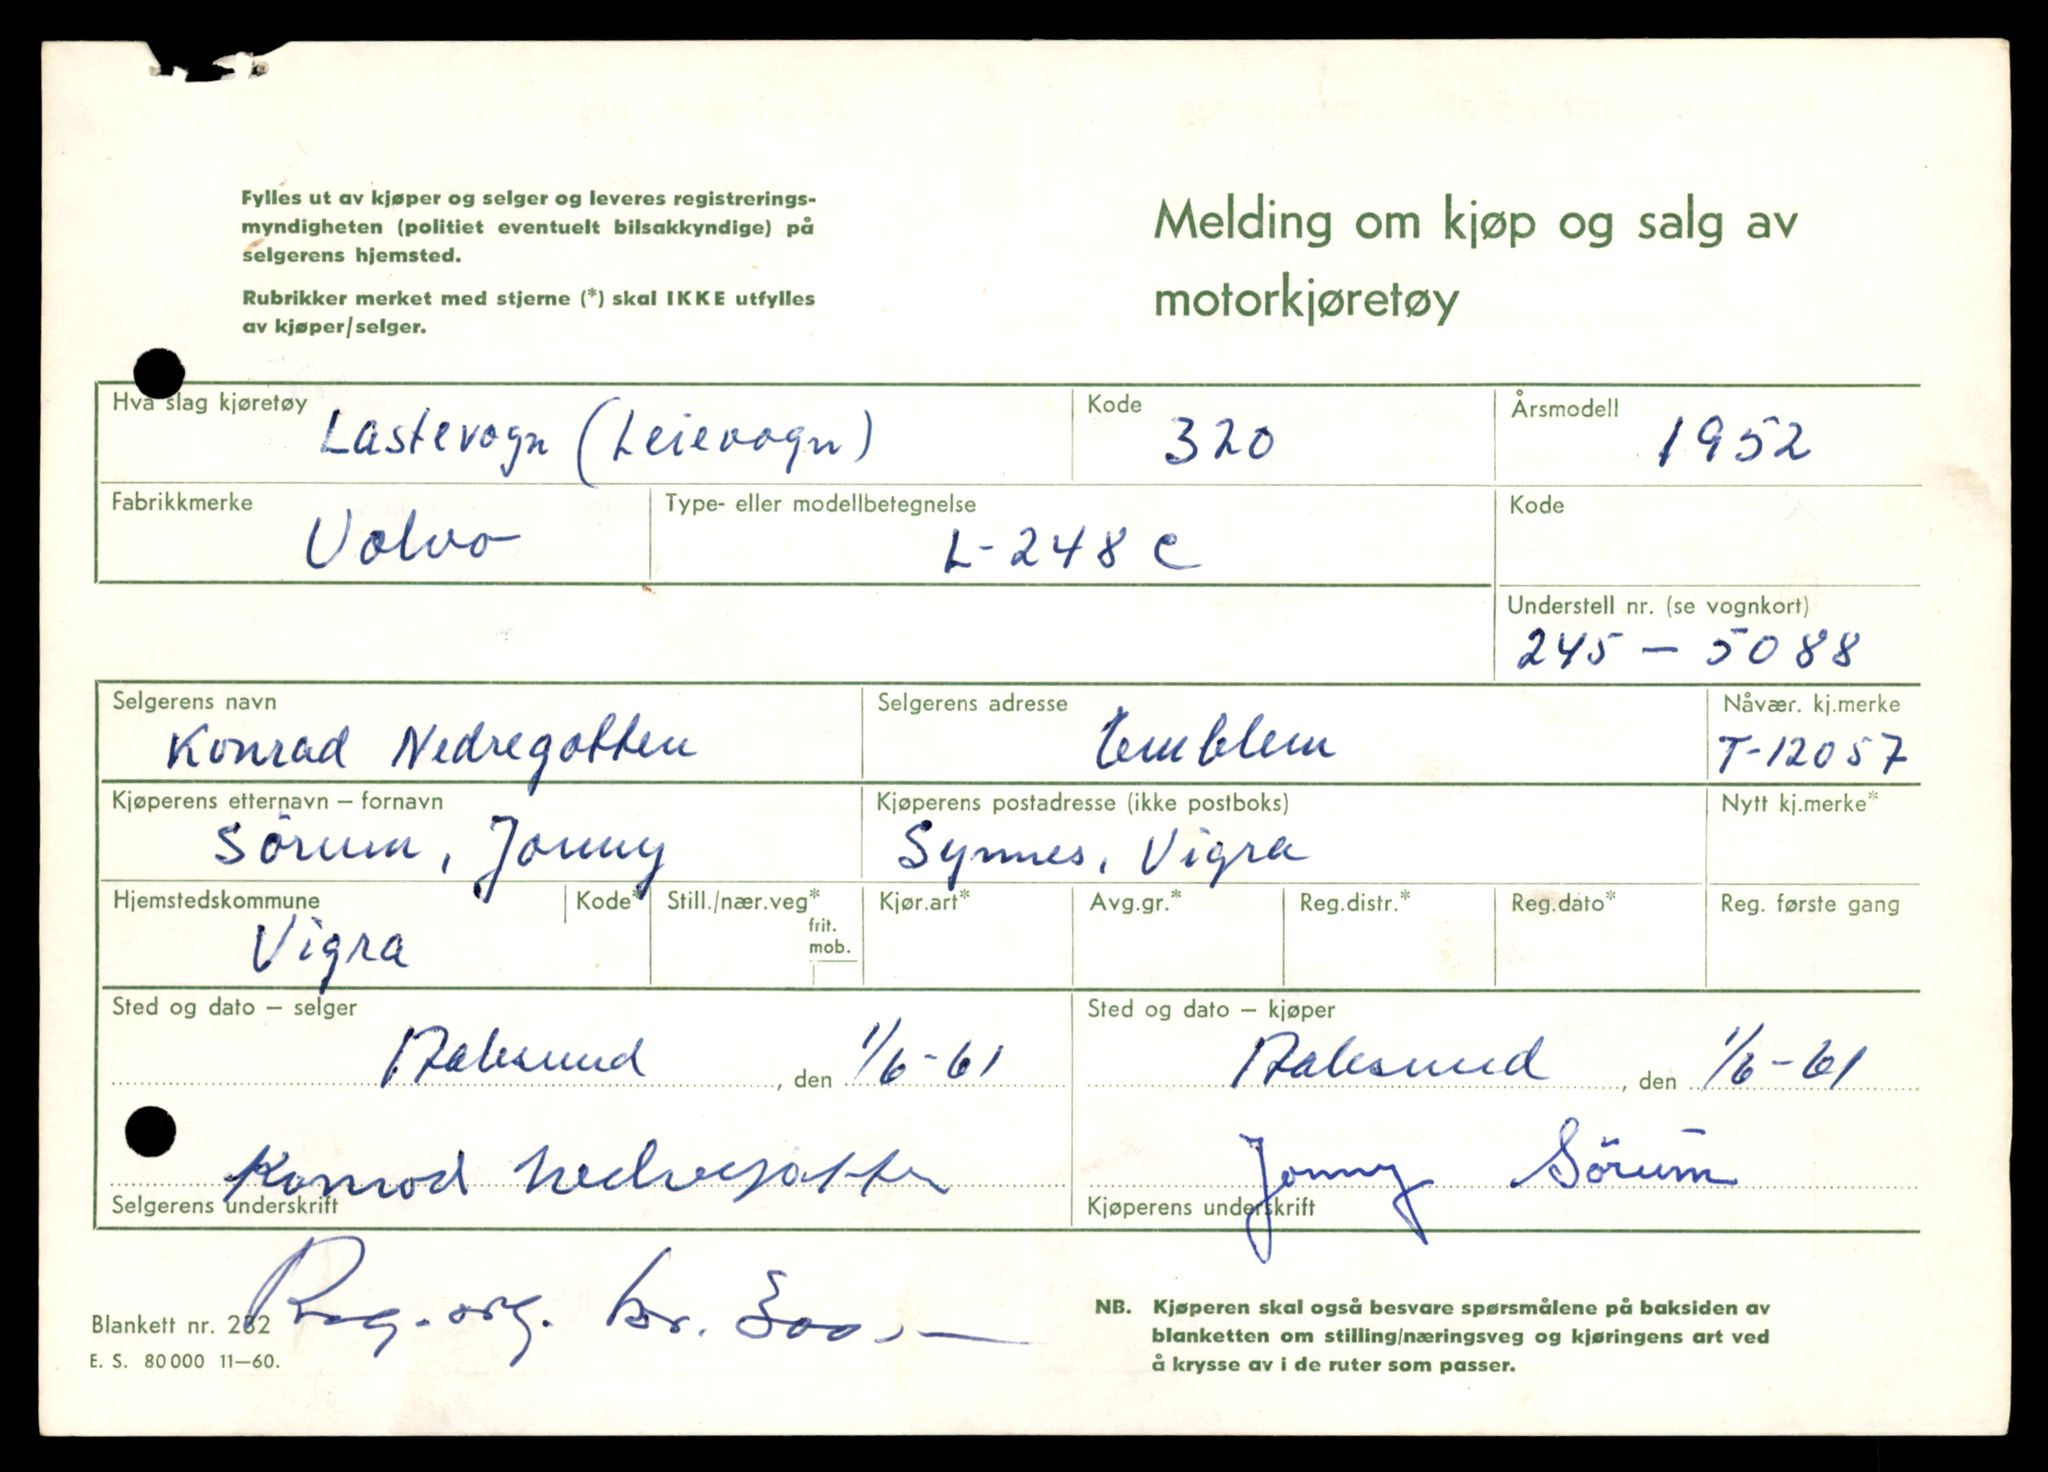 Fylles ut av kjøper og selger og leveres registrerings-
myndigheten (politiet eventuelt bilsakkyndige) på
selgerens hjemsted.
Rubrikker merket med stjerne (*) skal IKKE utfylles
av kjøper/selger.
Melding om kjøp og salg av
motorkjøretøy
Hva slag kjøretøy Kode Årsmodell
Lastevogn (Leievogn) 320 1952
Fabrikkmerke Type- eller modellbetegnelse Kode
Volvo L-248 C
Understell nr. (se vognkort)
245 - 5088
Selgerens navn Selgerens adresse Nåvær. kj.merke
Konrad Nedregotten Emblem T-12057
Kjøperens etternavn – fornavn Kjøperens postadresse (ikke postboks) Nytt kj.merke*
Sörum, Jonny Synnes, Vigra
Hjemstedskommune Kode* Still./nær.veg* Kjør.art* Avg.gr.* Reg.distr.* Reg.dato* Reg. første gang
frit.
mob.
Vigra
Sted og dato – selger Sted og dato – kjøper
Aalesund, den 1/6-61 Aalesund, den 1/6-61
Konrad Nedregotten Jonny Sörum
Selgerens underskrift Kjøperens underskrift
Reg. org. kr. 300,-
Blankett nr. 262
E. S. 80 000 11—60.
NB. Kjøperen skal også besvare spørsmålene på baksiden av
blanketten om stilling/næringsveg og kjøringens art ved
å krysse av i de ruter som passer.